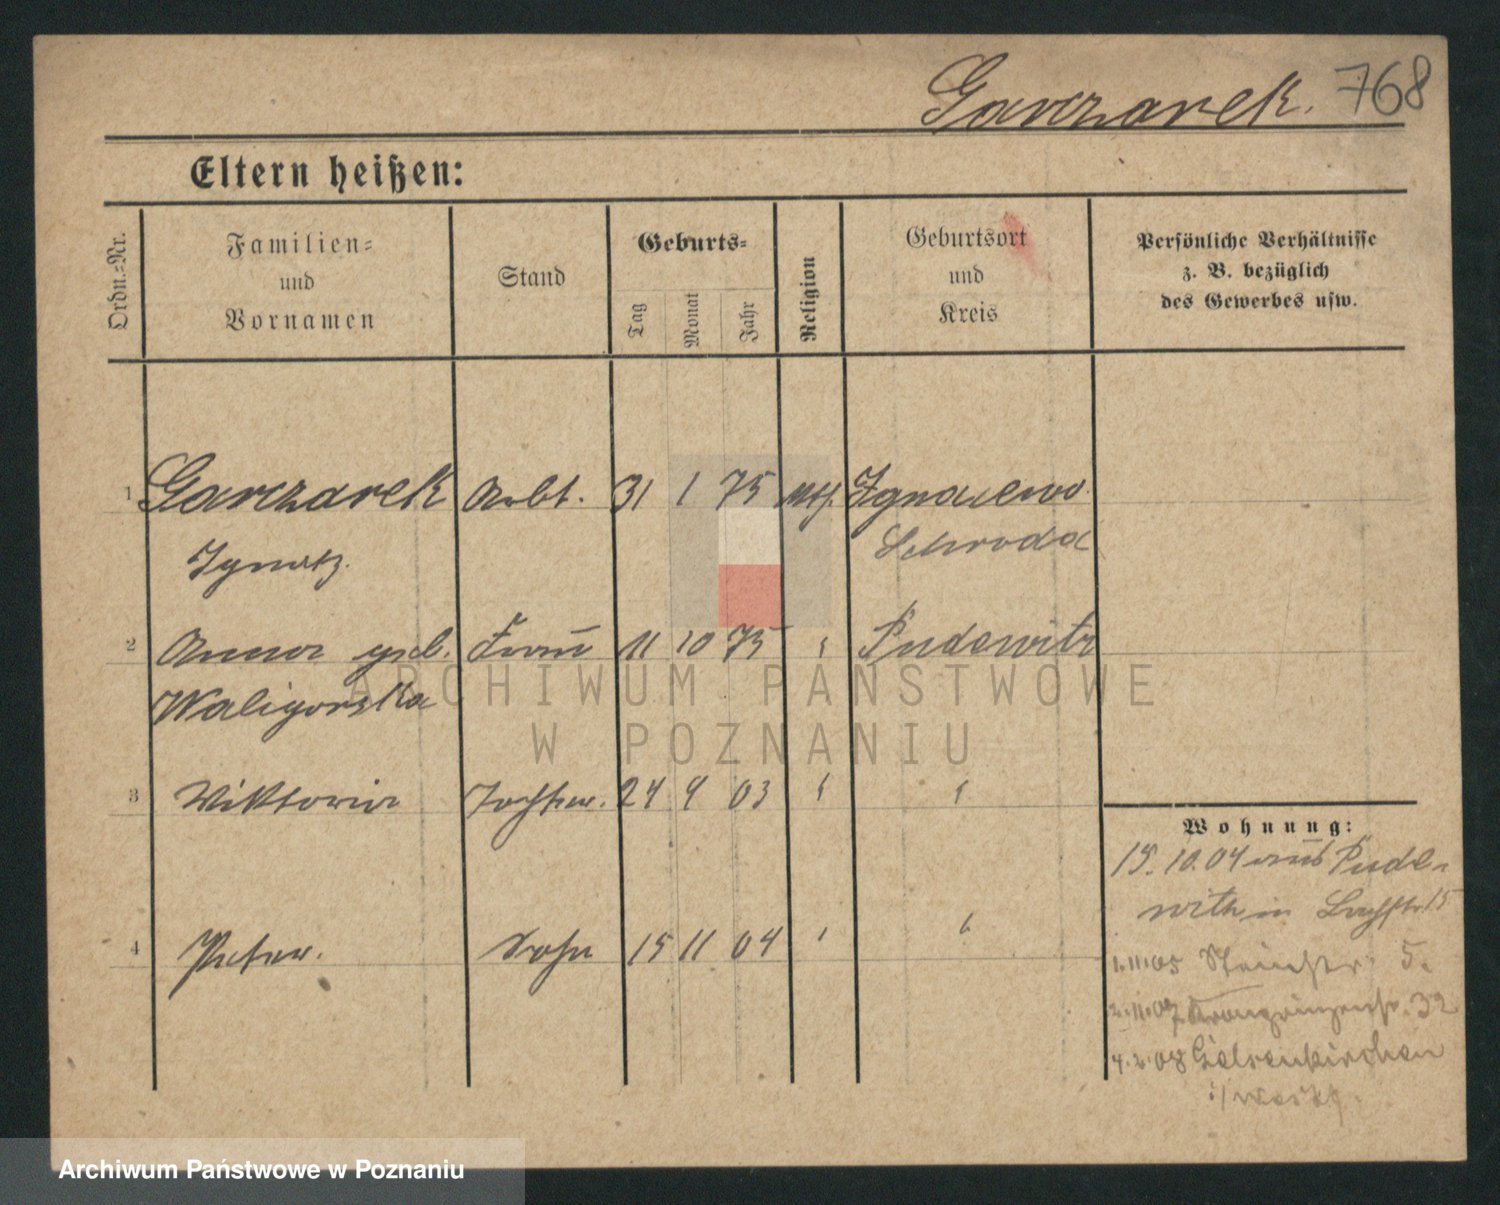 Garczarek. 768
Eltern heißen:
Ordn.-Nr.
Familien-
und
Vornamen
Stand
Geburts-
Tag
Monat
Jahr
Religion
Geburtsort
und
Kreis
Persönliche Verhältnisse
z. B. bezüglich
des Gewerbes usw.
1 Garczarek Arbt. 31 1 75 ktf.
Schroda
Ignatz.
2 Anna geb. Frau 11 10 75 " Pudewitz
Waligorska
3 Wiktoria Tochter. 24 9 03 " "
4 Peter. Sohn 15 11 04 " "
Wohnung:
15.10.04 aus Pude-
witz in Bachstr 15
1.11.05 5.
2.11.07 Kronprinzenstr. 32
4.2.08 Gelsenkirchen
i/Westf.
ARCHIWUM PAŃSTWOWE
W POZNANIU
Archiwum Państwowe w Poznaniu